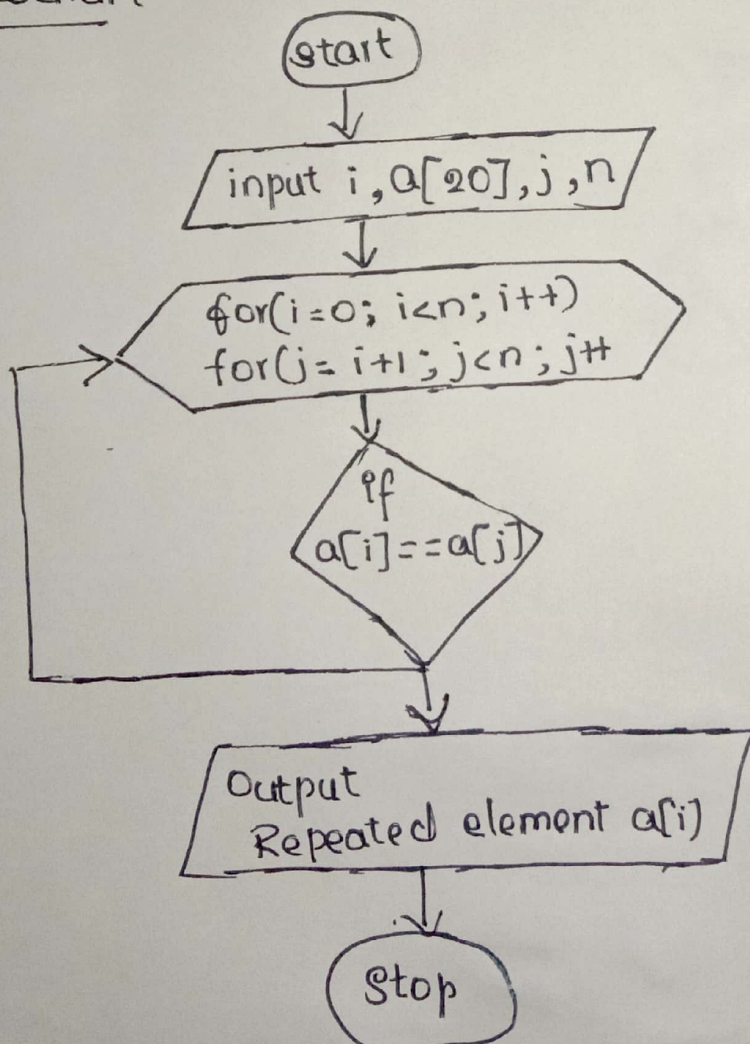 start
input i,a[20],j,n
for(i=0; i<n; i++)
for(j= i+1; j<n; j++
if
a[i]==a[j]
Output
Repeated element a[i]
Stop